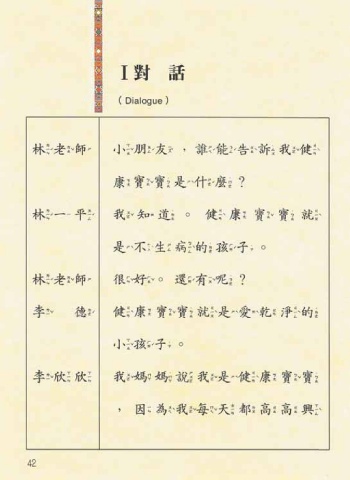 I 對 話
( Dialogue )
林老師 小朋友，誰能告訴我健
康寶寶是什麼？
林一平 我知道。健康寶寶就
是不生病的孩子。
林老師 很好。還有呢？
李德 健康寶寶就是愛乾淨的
小孩子。
李欣欣 我媽媽說我是健康寶寶
，因為我每天都高高興
42